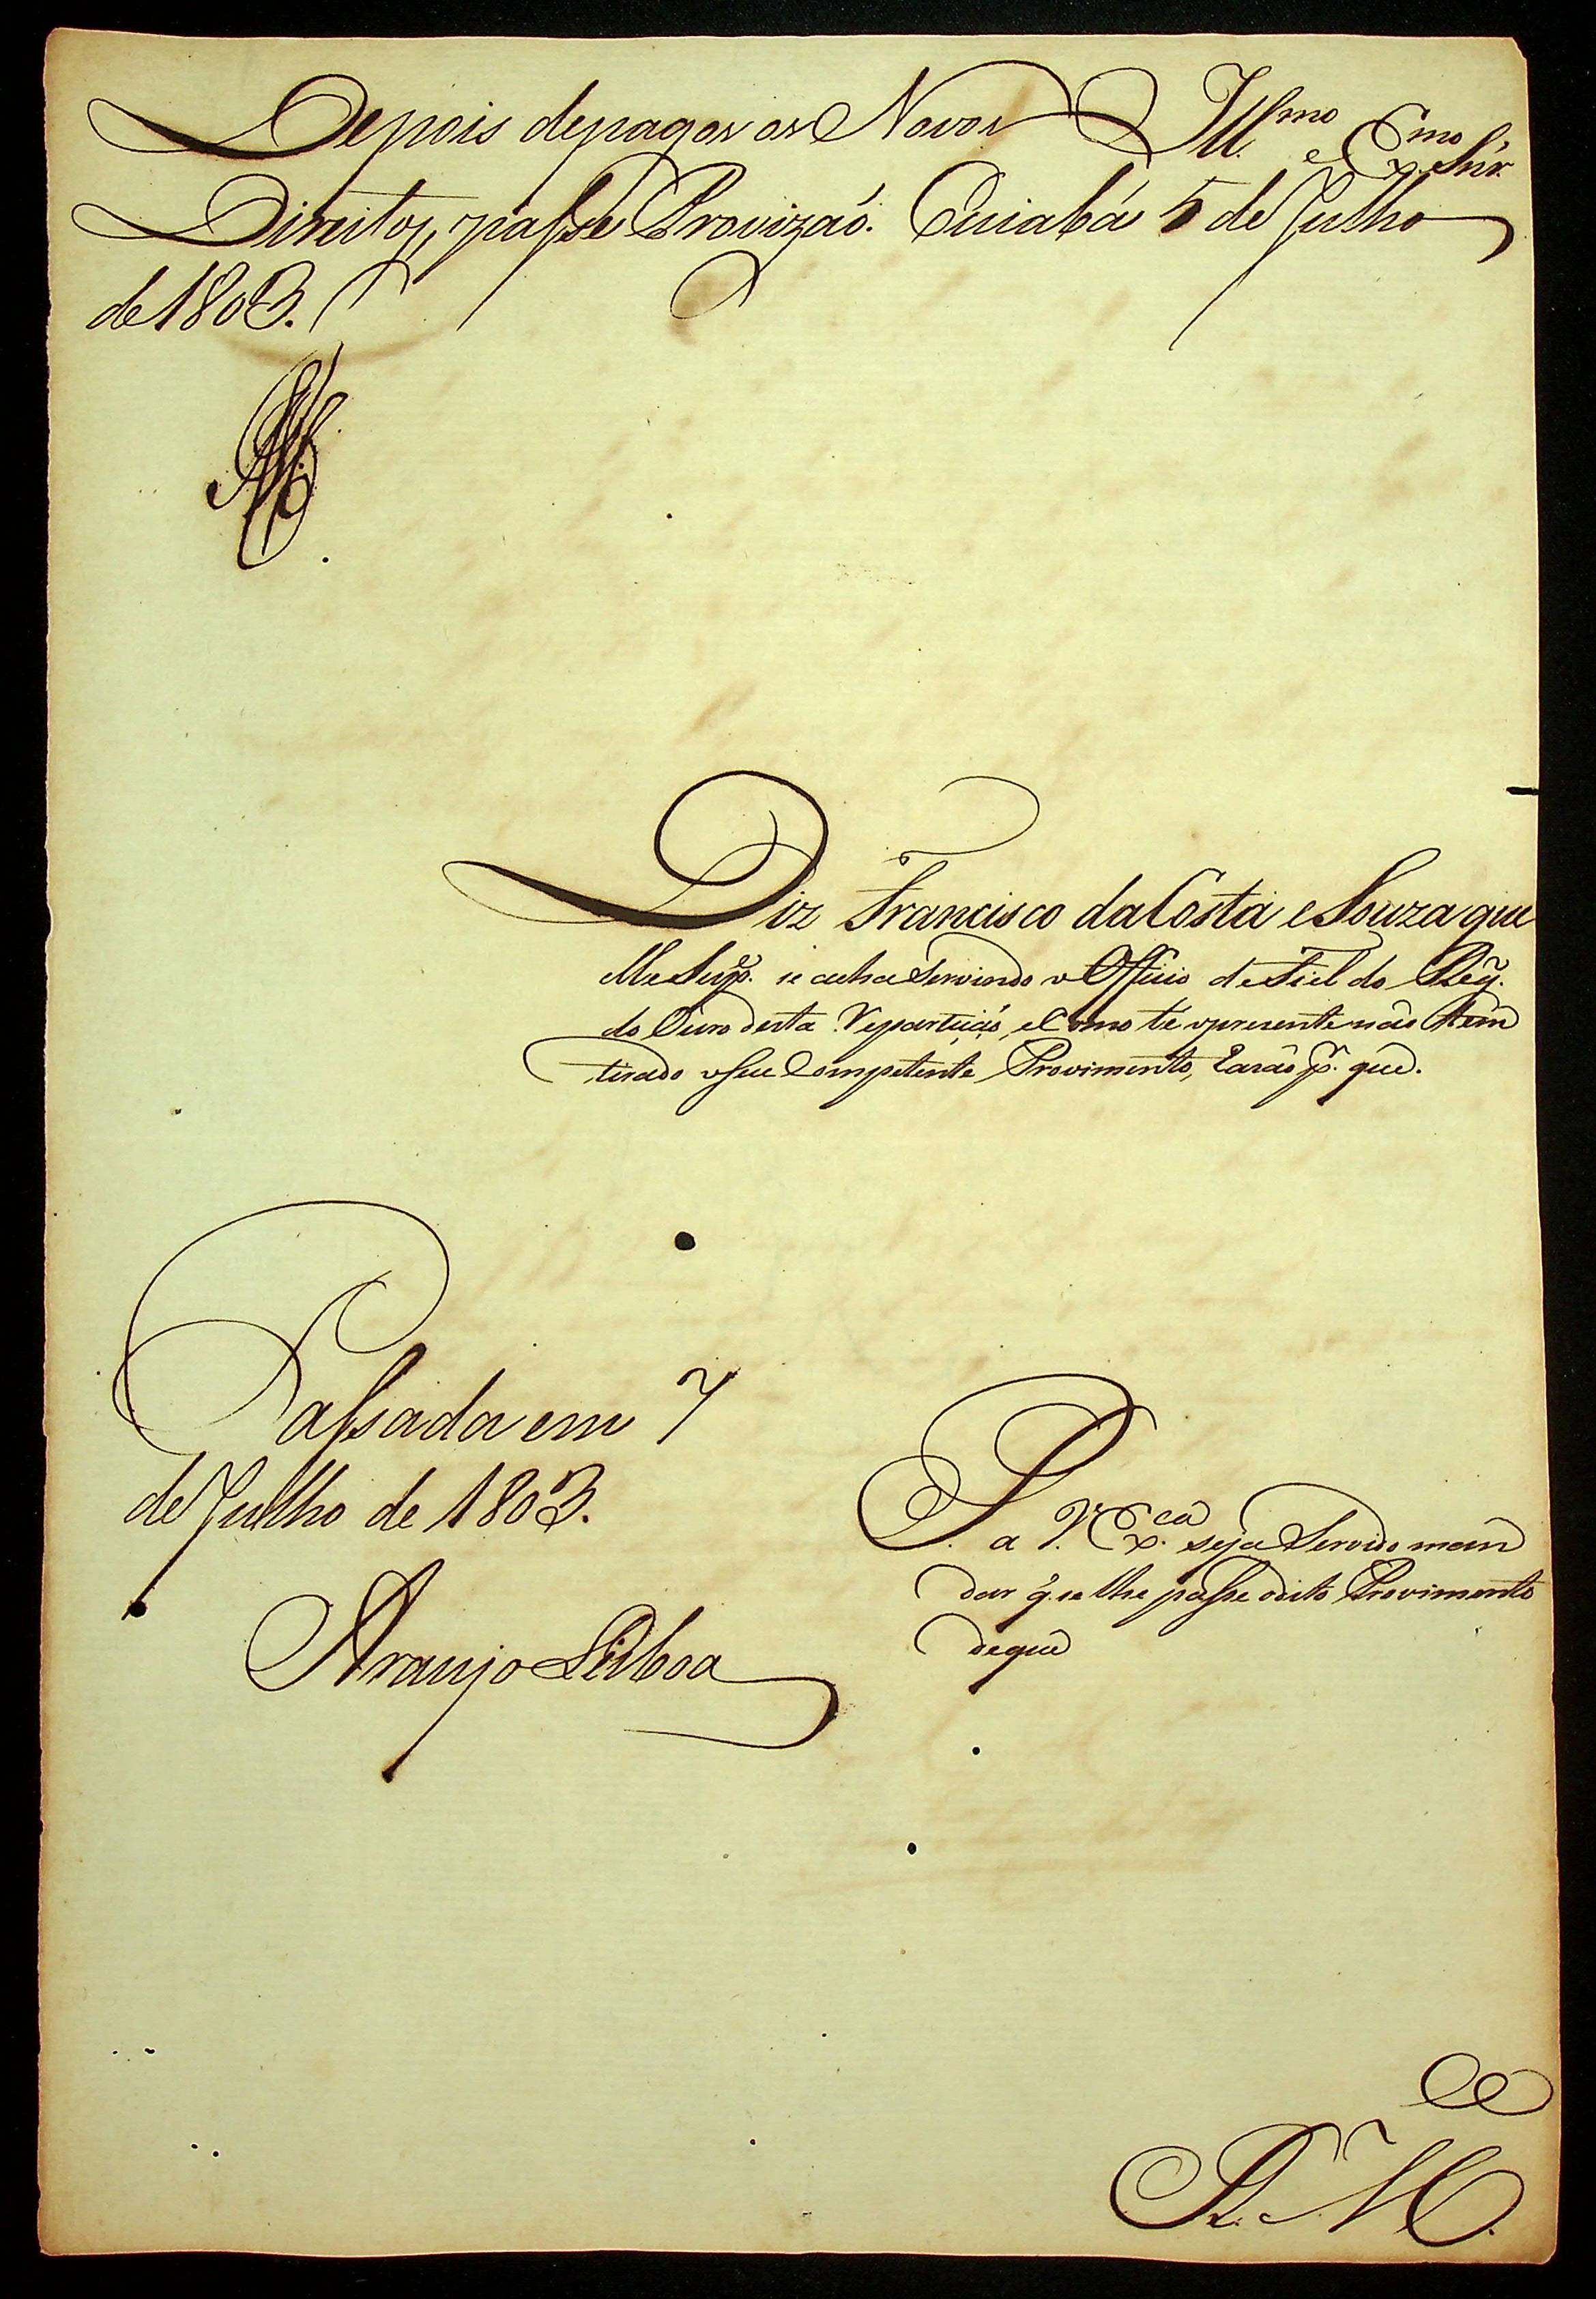 Depois depagos os Novos Ill.mo e Ex.mo Snr.
Direitos, passe Provizaó. Cuiabá 5 de Julho
de 1803.
Diz Francisco da Costa e Souza que
elle Sup.e se acha Servindo o Officio de Fiel do Reg.
do Ouro desta Repartiçaõ, e Como té o prezente naõ tem
tirado o seu Competente Provimento, razaõ p.r que.
Passada em 7
de Julho de 1803.
Araujo Lisboa
P. a V. Ex.ca seja Servido man
dar q. se lhe passe o dito Provimento
de que
E
R. M.